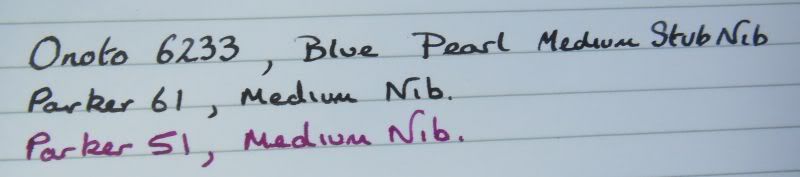 Onoto 6233, Blue Pearl Medium Stub Nib
Parker 61, Medium Nib.
Parker 51, Medium Nib.